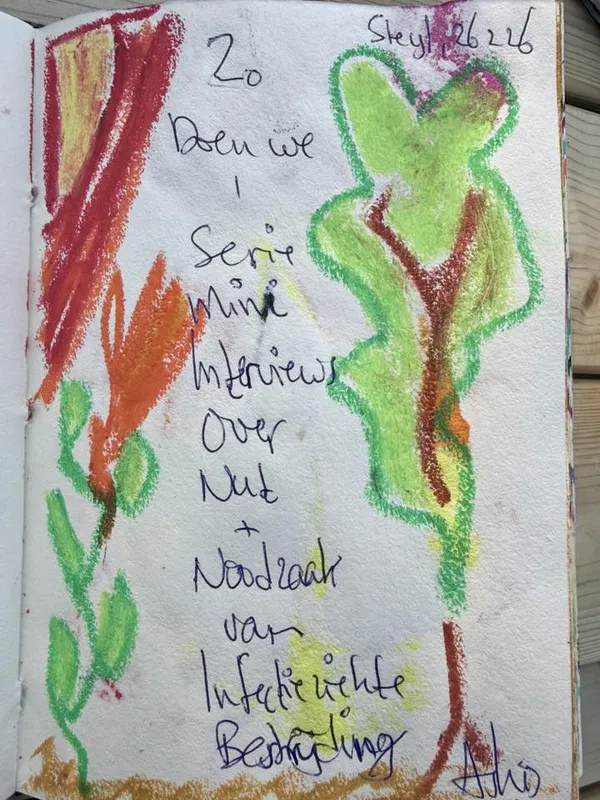 Steyl, 26 2 26
Zo
Doen we
1
Serie
Mini
Interviews
Over
Nut
+
Noodzaak
van
Infectieziekte
Bestrijding